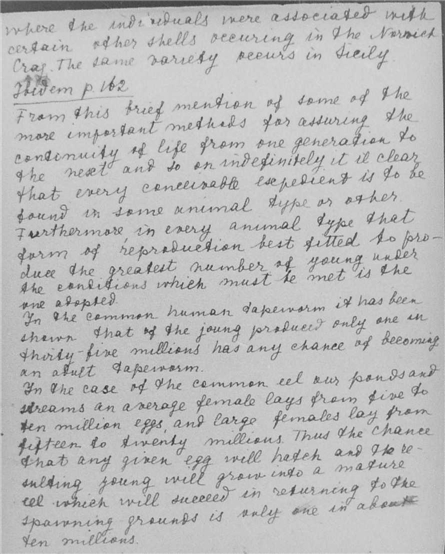 where the individuals were associated with
certain other shells occuring in the Norwich
Crag. The same variety occurs in Sicily.
Ibidem p. 162
From this brief mention of some of the
more important methods for assuring the
continuity of life from one generation to
the next and so on indefinitely it is clear
that every conceivable expedient is to be
found in some animal type or other.
Furthermore in every animal type that
form of reproduction best fitted to pro-
duce the greatest number of young under
the conditions which must be met is the
one adopted.
In the common human tapeworm it has been
shown that of the young produced only one in
thirty-five millions has any chance of becoming
an adult tapeworm.
In the case of the common eel our ponds and
streams an average female lays from five to
ten million eggs, and large females lay from
fifteen to twenty millions. Thus the chance
that any given egg will hatch and the re-
sulting young will grow into a mature
eel which will succeed in returning to the
spawning grounds is only one in about
ten millions.